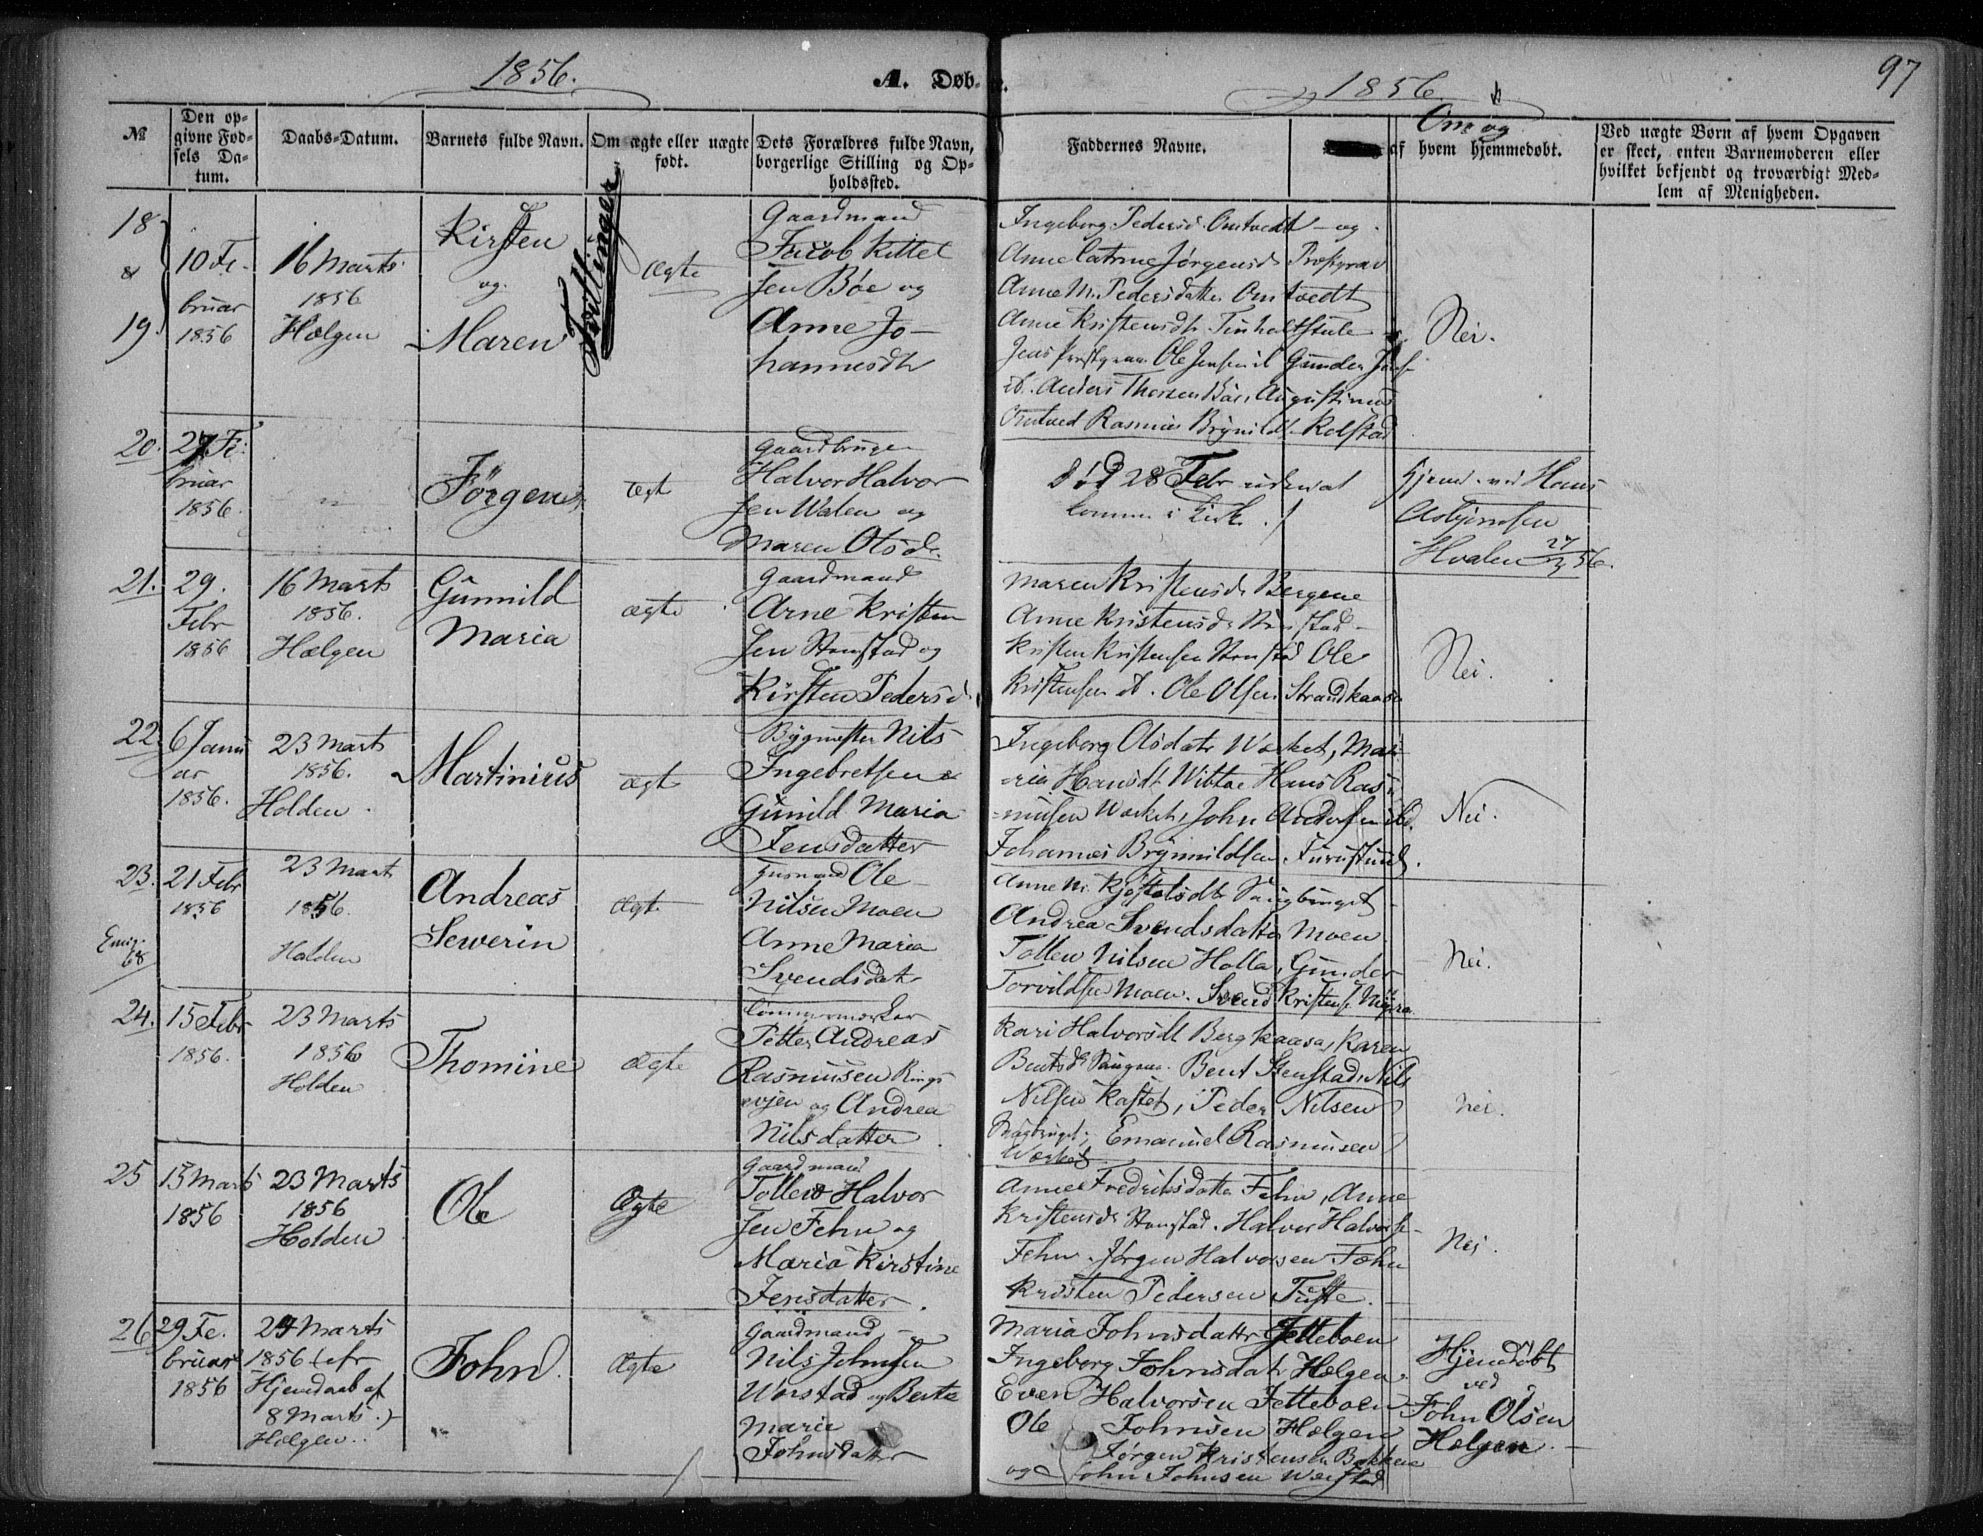 1856.
A. Døb-
1856.
97
№
Den op-
givne Fød-
sels Da-
tum.
Daabs-Datum.
Barnets fulde Navn.
Om ægte eller uægte
født.
Dets Forældres fulde Navn,
borgerlige Stilling og Op-
holdssted.
Faddernes Navne.
Om og
af hvem hjemmedøbt.
Ved uægte Børn af hvem Opgaven
er skeet, enten Barnemoderen eller
hvilket bekjendt og troværdigt Med-
lem af Menigheden.
18
&
19.
10 Fe-
bruar
1856
16 Marts
1856
Hælgen
Kirsten
og
Maren
Tvillinger
Ægte
Gaardmand
Jacob Kittel
sen Bøe og
Anne Jo-
hannesdtr
Ingeborg Pedersd. Omtvedt - og
Anne Catrine Jørgensd Præstgrav
Anne M. Pedersdatter Omtvedt
Anne Kristensdtr Tinholtstule
Jens Præstgrav Ole Jensen ib Gunder
ib. Anders Thorsen Bøe, Augustinus
Omtved Rasmus Brynilds. Kolstad
Nei.
20.
27 Fe-
bruar
1856.
Jørgen
ægt
Gaardbruger
Halvor Halvor
sen Valen og
Maren Olsdr.
død 28 Febr uden at
komme i Kirke
Hjemd. ved Hans
Asbjørnsen
Hvalen 27/2 56.
21.
29.
Febr
1856
16 Marts
1856.
Hælgen
Gunnild
Maria
ægte
Gaardmand
Arne Kristen
sen Stenstad og
Kirsten Pedersd.
Maren Kristensdr Bergene
Anne Kristensdr Stenstad
Kristen Kristensen Stenstad Ole
Kristensen ib. Ole Olsen Strandkaasa
Nei.
22.
6 Janu
ar
1856.
23 Marts
1856.
Holden
Martinius
ægt
Bygmester Nils
Ingebretsen &
Gunild Maria
Jensdatter
Ingeborg Olsdatr Værket, Ma
ria Hansdt Vibtoe Hans Ras
musen Værket, John Andersen ibd.
Johannes Brynnildsen Furustund.
Nei.
23.
Emig.
68
21 Febr
1856
23 Marts
1856.
Holden
Andreas
Sewerin
Ægte
Husmand Ole
Nilsen Moen
Anne Maria
Svendsdatr
Anne M. Kjøstolsdtr Saugbruget
Andrea Svendsdatter Moen
Tollev Nilsen Holla, Gunder
Torvildsen Moen. Svend Kristens.
Nei.
24.
15 Febr
1856.
23 Marts
1856
Holden
Thomine
Ægte
Tømmermærker
Petter Andreas
Rasmusen Rings
evjen og Andrea
Nilsdatter
Kari Halvorsdt Bergkaasa, Karen
Bentsdr Saugene. Bent Stenstad, Nils
Nilsen Kastet, Peder Nilsen
Saugbruget, Emanuel Rasmusen
Værket
Nei.
25
15 Marts
1856
23 Marts
1856
Holden
Ole
Ægte
Gaardmand
Tollev Halvor
sen Fehn og
Maria Kirstine
Jensdatter
Anne Fredriksdatter Fehn, Anne
Kristensdr Stenstad. Halvor Halvorse
Fehn. Jørgen Halvorsen Fæhn
Kristen Pedersen Tufte.
Nei.
26
29 Fe-
bruar
1856
24 Marts
1856 (efr
Hjemdaab af
8 Marts.)
Hælgen.
John
Ægte
Gaardmand
Nils Johnsen
Værstad og Berte
Marie
Johnsdatter
Maria Johnsdattr Jetteboen
Ingeborg Johnsdatr Hælgen
Even Halvorsen Jetteboen
Ole Johnsen Hælgen
Jørgen Kristensen Bakken
og John Johnsen Værstad
Hjemdøbt
ved
John Olsen
Hælgen